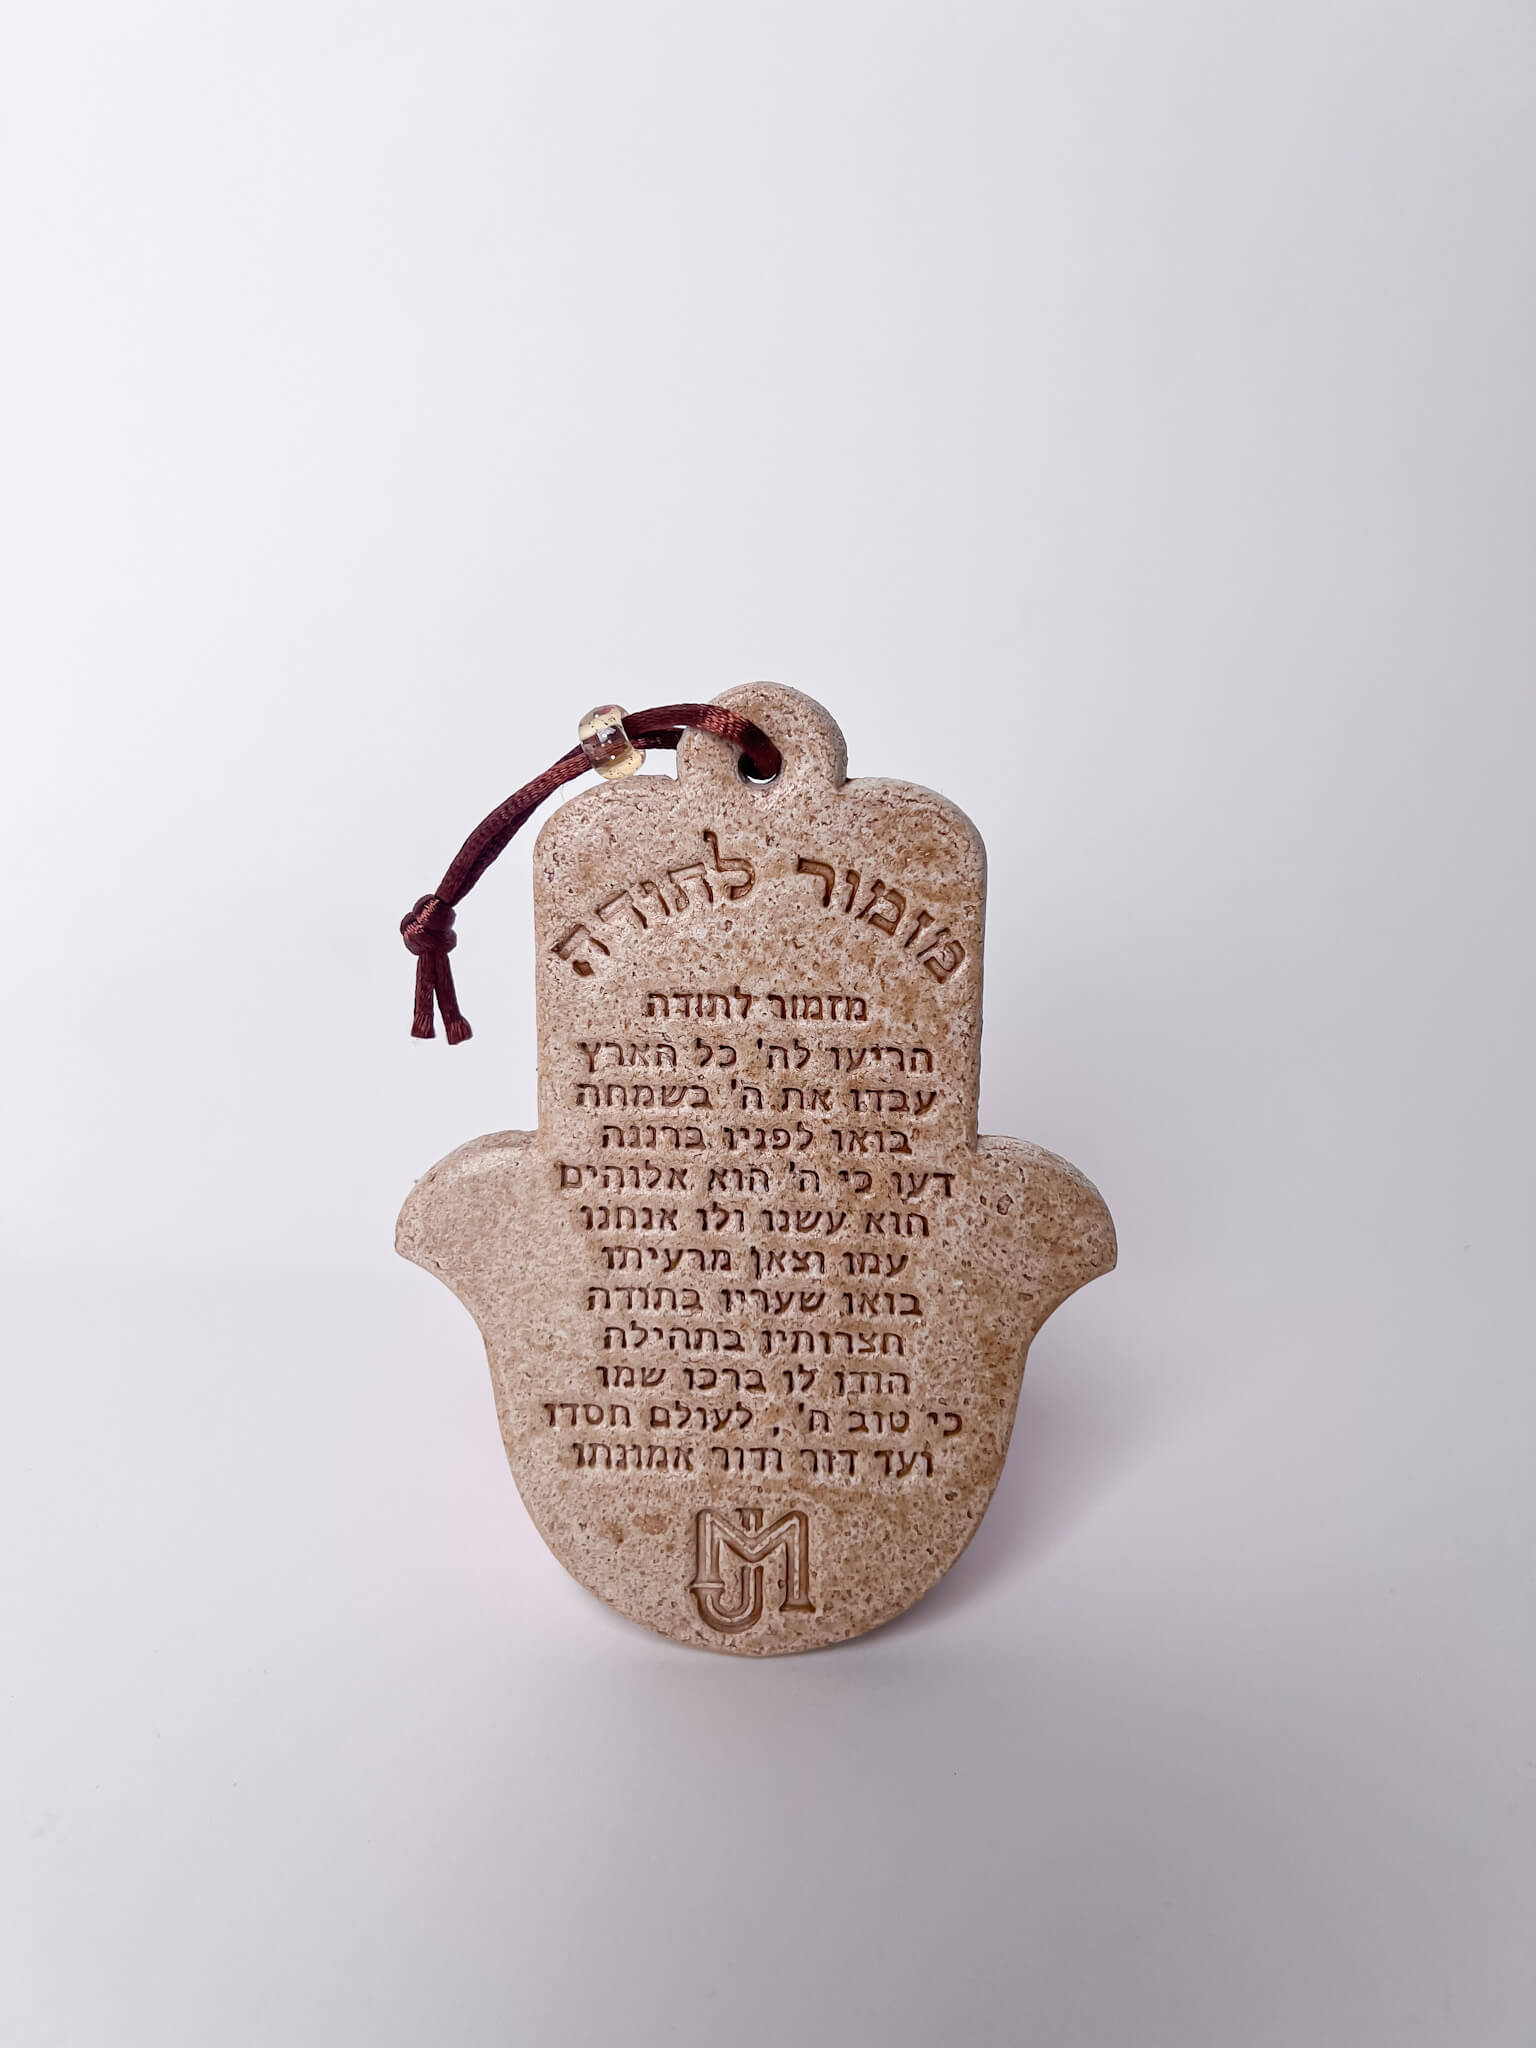 מזמור לתודה
מזמור לתודה
הריעו לה' כל הארץ
עבדו את ה' בשמחה
בואו לפניו ברננה
דעו כי ה' הוא אלוהים
הוא עשנו ולו אנחנו
עמו וצאן מרעיתו
בואו שעריו בתודה
חצרותיו בתהילה
הודו לו ברכו שמו
כי טוב ה', לעולם חסדו
ועד דור ודור אמונתו